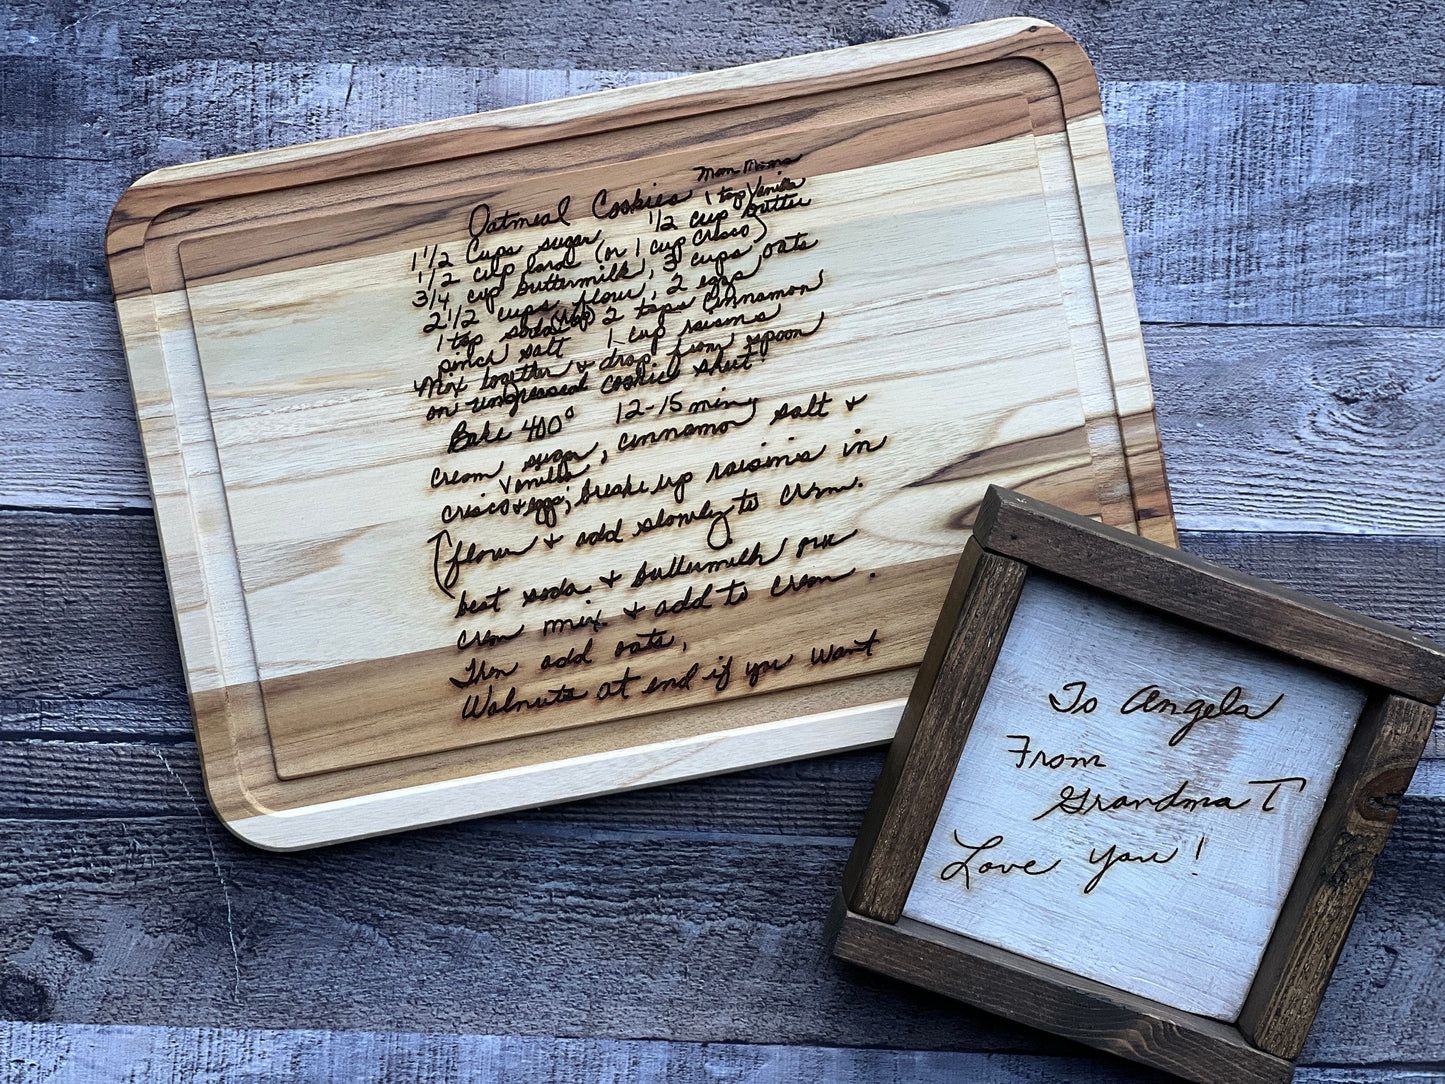 Oatmeal Cookies Mom Moms
1 tsp Vanilla
1 1/2 Cups sugar 1/2 cup butter
1/2 cup lard (or 1 cup crisco)
3/4 cup buttermilk, 3 cups oats
2 1/2 cups flour, 2 eggs
1 tsp soda 2 tsps cinnamon
pinch salt 1 cup raisins
Mix together & drop from spoon
on ungreased cookie sheet!
Bake 400° 12-15 min
cream sugar, cinnamon salt &
vanilla
crisco & eggs; break up raisins in
(flour & add slowly to crem.
best soda & buttermilk
crem mix. & add to crem.
Then add oats,
Walnuts at end if you want
To Angela
From
Grandma T
Love you!